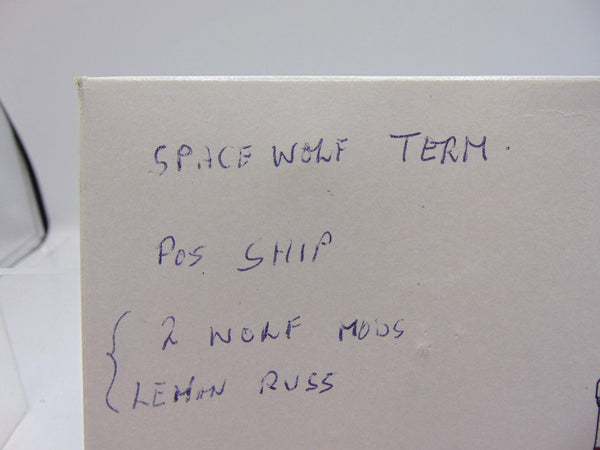 SPACE WOLF TERM.
POS. SHIP
2 WOLF MODS
LEMAN RUSS